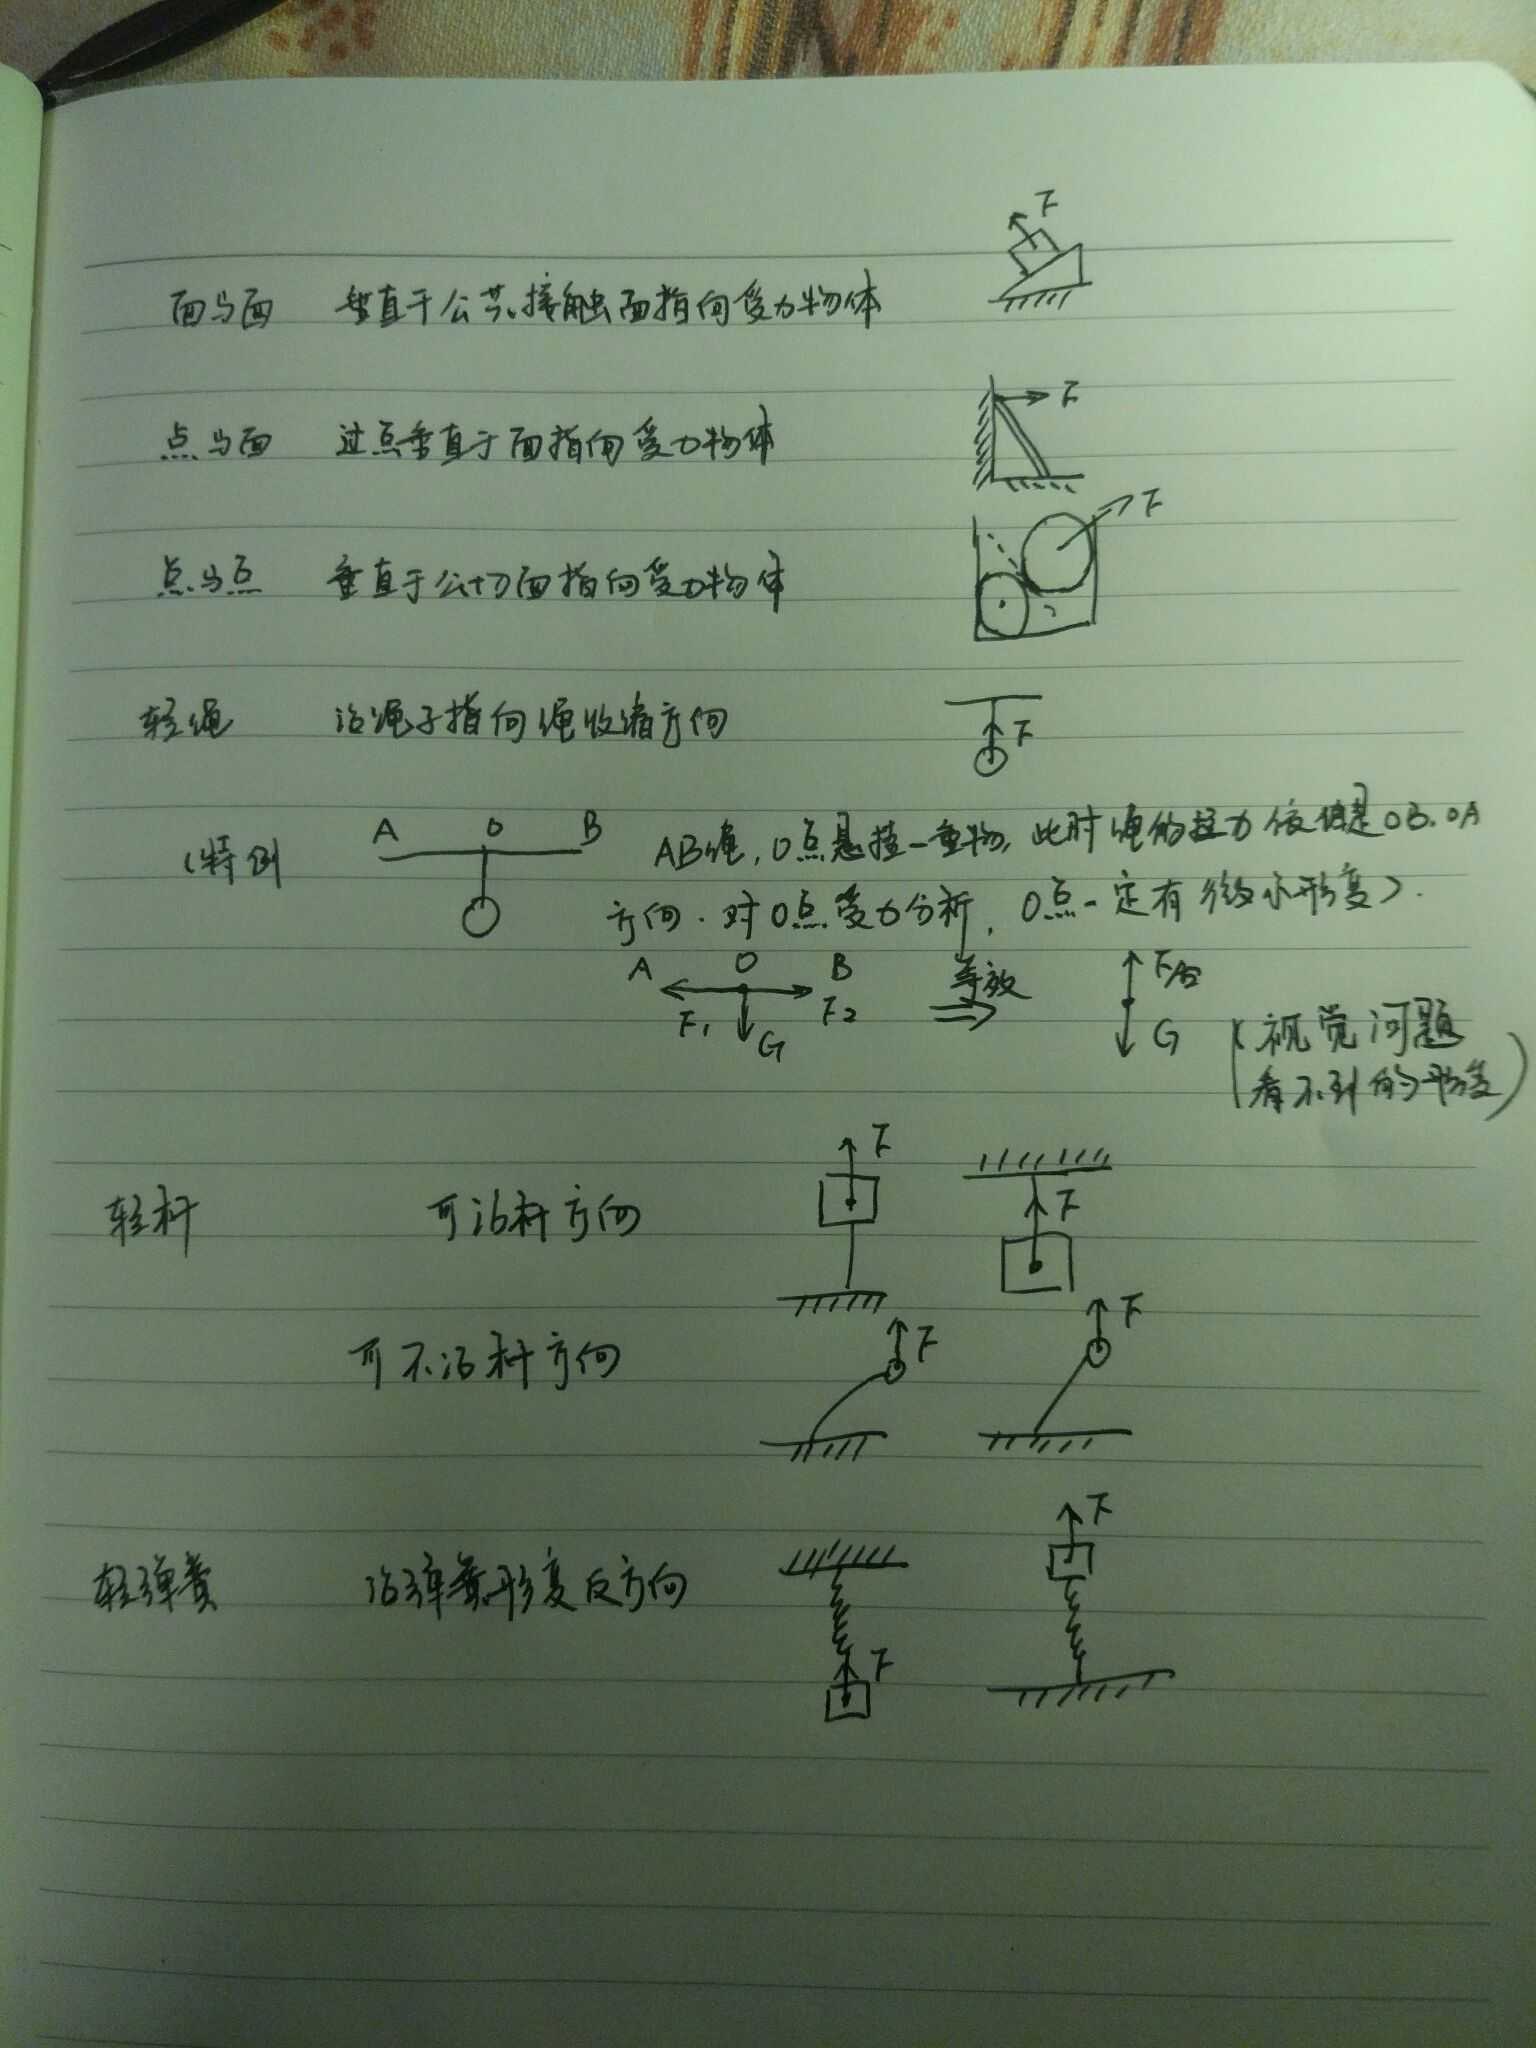 F
面与面 垂直于公共接触面指向受力物体
F
点与面 过点垂直于面指向受力物体
F
点与点 垂直于公切面指向受力物体
轻绳 沿绳子指向绳收缩方向
F
(特例 A O B AB绳,O点悬挂一重物,此时绳的拉力依然是OB.OA
方向.对O点受力分析,O点一定有微小形变).
A O B 等效 F合
F₁ F₂ G G (视觉问题
看不到的形变)
F
轻杆 可沿杆方向 F
可不沿杆方向 F F
F
轻弹簧 沿弹簧形变反方向
F